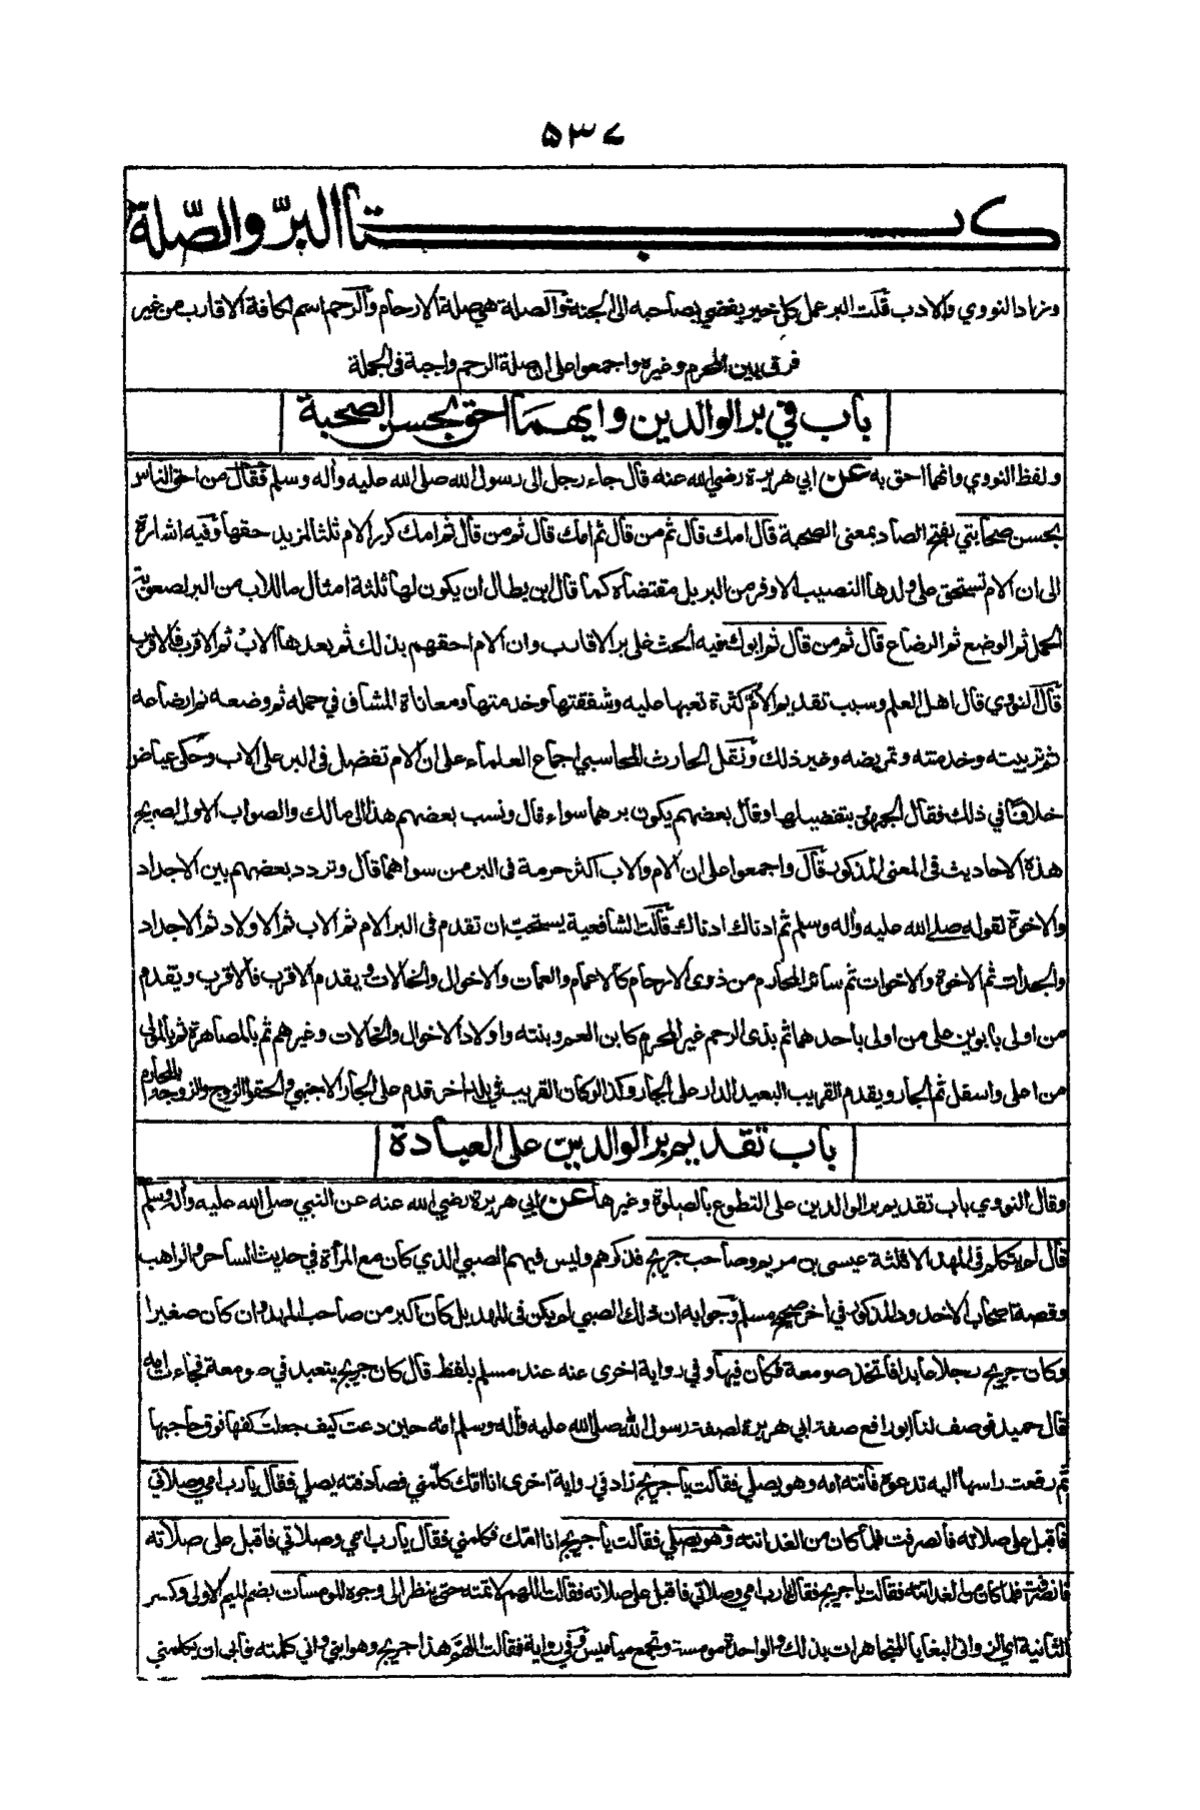 ۵۳۷
كتاب البرّ والصّلة
وزاد النووي والادب قلت البر عمل كل خير يفضي بصاحبه الى الجنة والصلة هي صلة الارحام والرحم اسم لكافة الاقارب من غير
فرق بين المحرم وغيره واجمعوا على ان صلة الرحم واجبة في الجملة
باب في بر الوالدين وايهما احق بحسن الصحبة
ولفظ النووي وانهما احق به عن ابي هريرة رضي الله عنه قال جاء رجل الى رسول الله صلى الله عليه واله وسلم فقال من احق الناس
بحسن صحابتي بفتح الصاد بمعنى الصحبة قال امك قال ثم من قال ثم امك قال ثم من قال ثم امك كرر الام ثلثا لمزيد حقها وفيه اشارة
الى ان الام تستحق على ولدها النصيب الاوفر من البر بل مقتضاه كما قال ابن بطال ان يكون لها ثلثة امثال ما للاب من البر لصعوبة
الحمل ثم الوضع ثم الرضاع قال ثم من قال ثم ابوك فيه الحث على بر الاقارب وان الام احقهم بذلك ثم بعدها الاب ثم الاقرب فالاقرب
قال النووي قال اهل العلم وسبب تقديم الام كثرة تعبها عليه وشفقتها وخدمتها ومعاناة المشاق في حمله ثم وضعه ثم ارضاعه
ثم تربيته وخدمته وتمريضه وغير ذلك ونقل الحارث المحاسبي اجماع العلماء على ان الام تفضل في البر على الاب وحكى عياض
خلافا في ذلك فقال الجمهور بتفضيلها وقال بعضهم يكون برهما سواء قال ونسب بعضهم هذا الى مالك والصواب الاول لصريح
هذة الاحاديث في المعنى المذكور قال واجمعوا على ان الام والاب اكثر حرمة في البر من سواهما قال وتردد بعضهم بين الاجداد
والاخوة لقوله صلى الله عليه واله وسلم ثم ادناك ادناك قالت الشافعية يستحب ان تقدم في البر الام ثم الاب ثم الاولاد ثم الاجداد
والجدات ثم الاخوة والاخوات ثم سائر المحارم من ذوى الارحام كالاعمام والعمات والاخوال والخالات ويقدم الاقرب فالاقرب ويقدم
من ادلى بابوين على من ادلى باحدهما ثم بذى الرحم غير المحرم كابن العم وبنته واولاد الاخوال والخالات وغيرهم ثم بالمصاهرة ثم بالمولى
من اعلى واسفل ثم الجار ويقدم القريب البعيد الدار على الجار وكذا لو كان القريب في بلد اخر قدم على الجار الاجنبي والحقوا الزوج والزوجة بالمحارم
باب تقديم بر الوالدين على العبادة
وقال النووي باب تقديم بر الوالدين على التطوع بالصلوة وغيرها عن ابي هريرة رضي الله عنه عن النبي صلى الله عليه واله وسلم
قال لم يتكلم في المهد الا ثلثة عيسى بن مريم وصاحب جريج فذكرهم وليس فيهم الصبي الذي كان مع المرأة في حديث الساحر والراهب
وقصة اصحاب الاخدود المذكور في اخر صحيح مسلم وجوابه ان ذلك الصبي لم يكن في المهد بل كان اكبر من صاحب المهد وان كان صغيرا
وكان جريج رجلا عابدا فاتخذ صومعة فكان فيها وفي رواية اخرى عنه عند مسلم بلفظ قال كان جريج يتعبد في صومعة فجاءت امه
قال حميد فوصف لنا ابو رافع صفة ابي هريرة لصفة رسول الله صلى الله عليه واله وسلم امه حين دعت كيف جعلت كفها فوق حاجبها
ثم رفعت راسها اليه تدعوه فاتته امه وهو يصلي فقالت يا جريج زاد في رواية اخرى انا امك كلمني فصادفته يصلي فقال يا رب امي وصلاتي
فاقبل على صلاته فانصرفت فلما كان من الغد اتته وهو يصلي فقالت يا جريج انا امك فكلمني فقال يا رب امي وصلاتي فاقبل على صلاته
فانصرفت فلما كان من الغد اتته فقالت يا جريج فقال يا رب امي وصلاتي فاقبل على صلاته فقالت اللهم لا تمته حتى ينظر الى وجوه المومسات بضم الميم الاولى وكسر
الثانية اي الزواني البغايا المتجاهرات بذلك والواحدة مومسة وتجمع مياميس وفي رواية فقالت اللهم هذا جريج وهو ابني واني كلمته فابى ان يكلمني